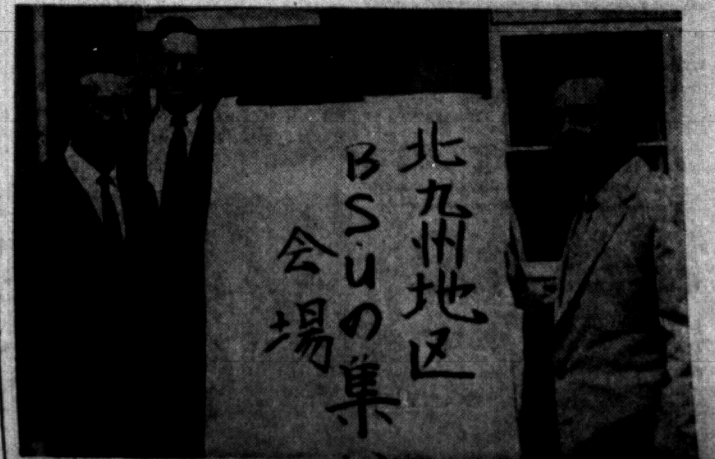 北九州地区
BSUの集い
会場